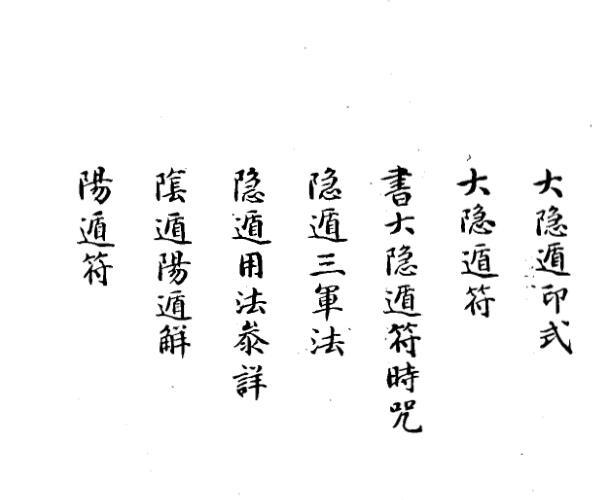 大隐遁印式
大隐遁符
書大隐遁符時咒
隐遁三軍法
隐遁用法叅詳
陰遁陽遁解
陽遁符